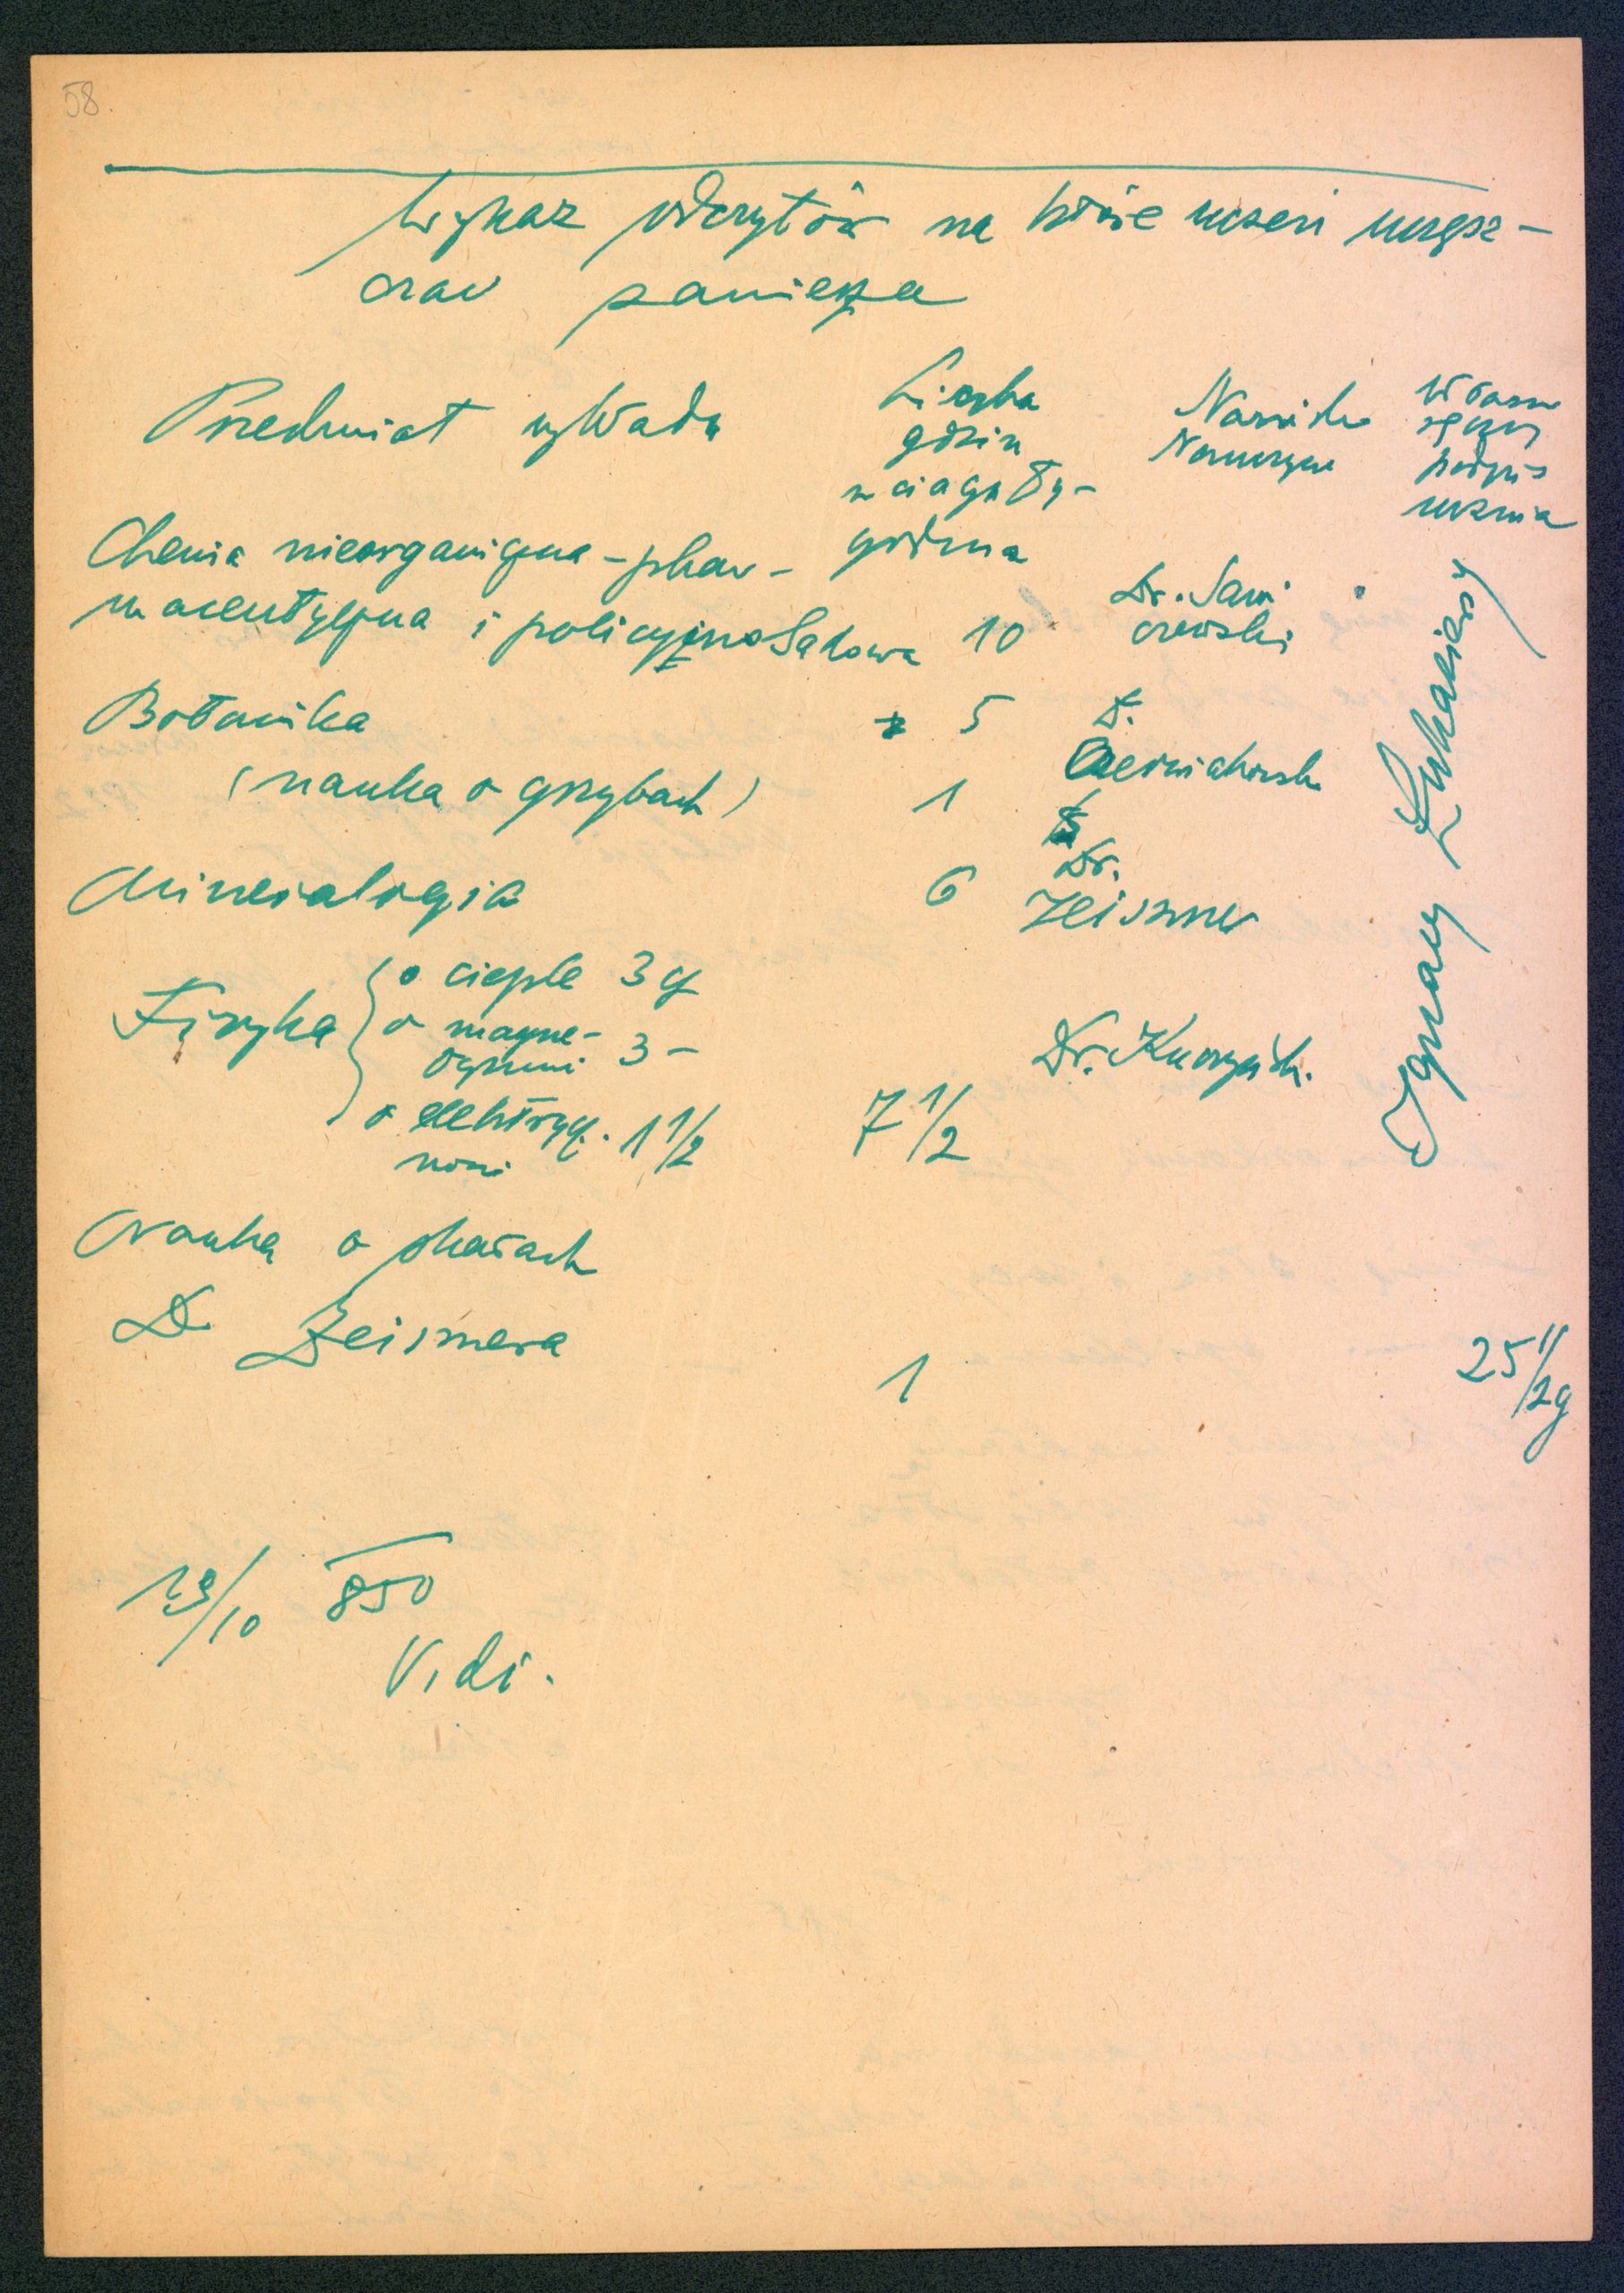 58.
Wykaz odczytów na które uczeń uczęsz-
czać zamierza
Przedmiot wykładu
Liczba
godzin
w ciągu ty-
godnia
Nazwisko
Własno
ręczny
podpis
ucznia
Chemia nieorganiczna - phar-
maceutyczna i policyjno Sądowa 10 Dr. Sawi
czewski
Botanika 5 D.
Czerwiakowski
(nauka o grzybach) 1
Mineralogia 6 Dr.
Zeiszner
Fizyka { o cieple 3 g
o magne-
tyzmi 3 -
o elektrycz. 1 1/2
ności
7 1/2 Dr. Kuczyńsk.
Ignacy Łukasiewicz
Nauka o skałach
Dr Zeisznera
1 25 1/2 g
19/10 850
Vidi.